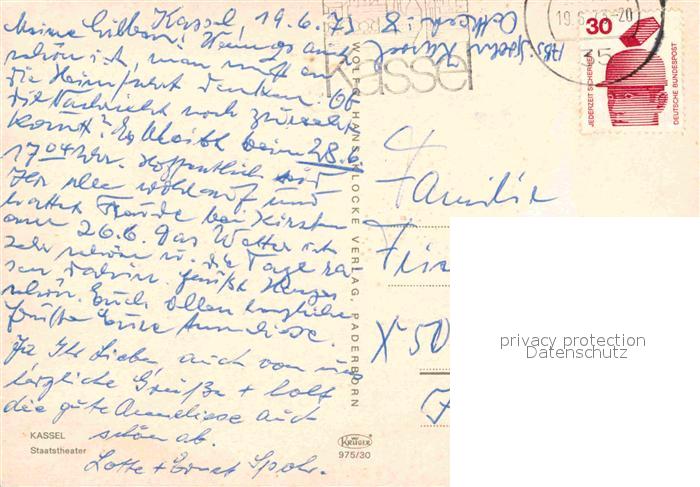 Kassel, 19.6.73
Meine Lieben! Wenn's auch
schön ist, man muß an
die Heimfahrt denken. Ob
die Nachricht noch zurecht
kommt? Es bleibt beim 28.6.
17 04 Uhr. Hoffentlich seid
Ihr alle wohlauf und
hattet Freude bei Kirsten
am 26.6. Das Wetter ist
sehr schön u. die Tage
dahin. Grüßt
schön. Euch allen herzliche
Grüße Eure Anneliese.
Ja Ihr Lieben, auch von uns
herzliche Grüße +
die gute Anneliese auch
schön ab.
Lotte + Ernst Spohr.
KASSEL
Staatstheater
WOLFG. HANS KLOCKE VERLAG, PADERBORN
KRÜGER
975/30
Abs. Spohr Kassel
kassel
19.6.73-20
35
30
JEDERZEIT SICHERHEIT
DEUTSCHE BUNDESPOST
Familie
X-50
privacy protection
Datenschutz